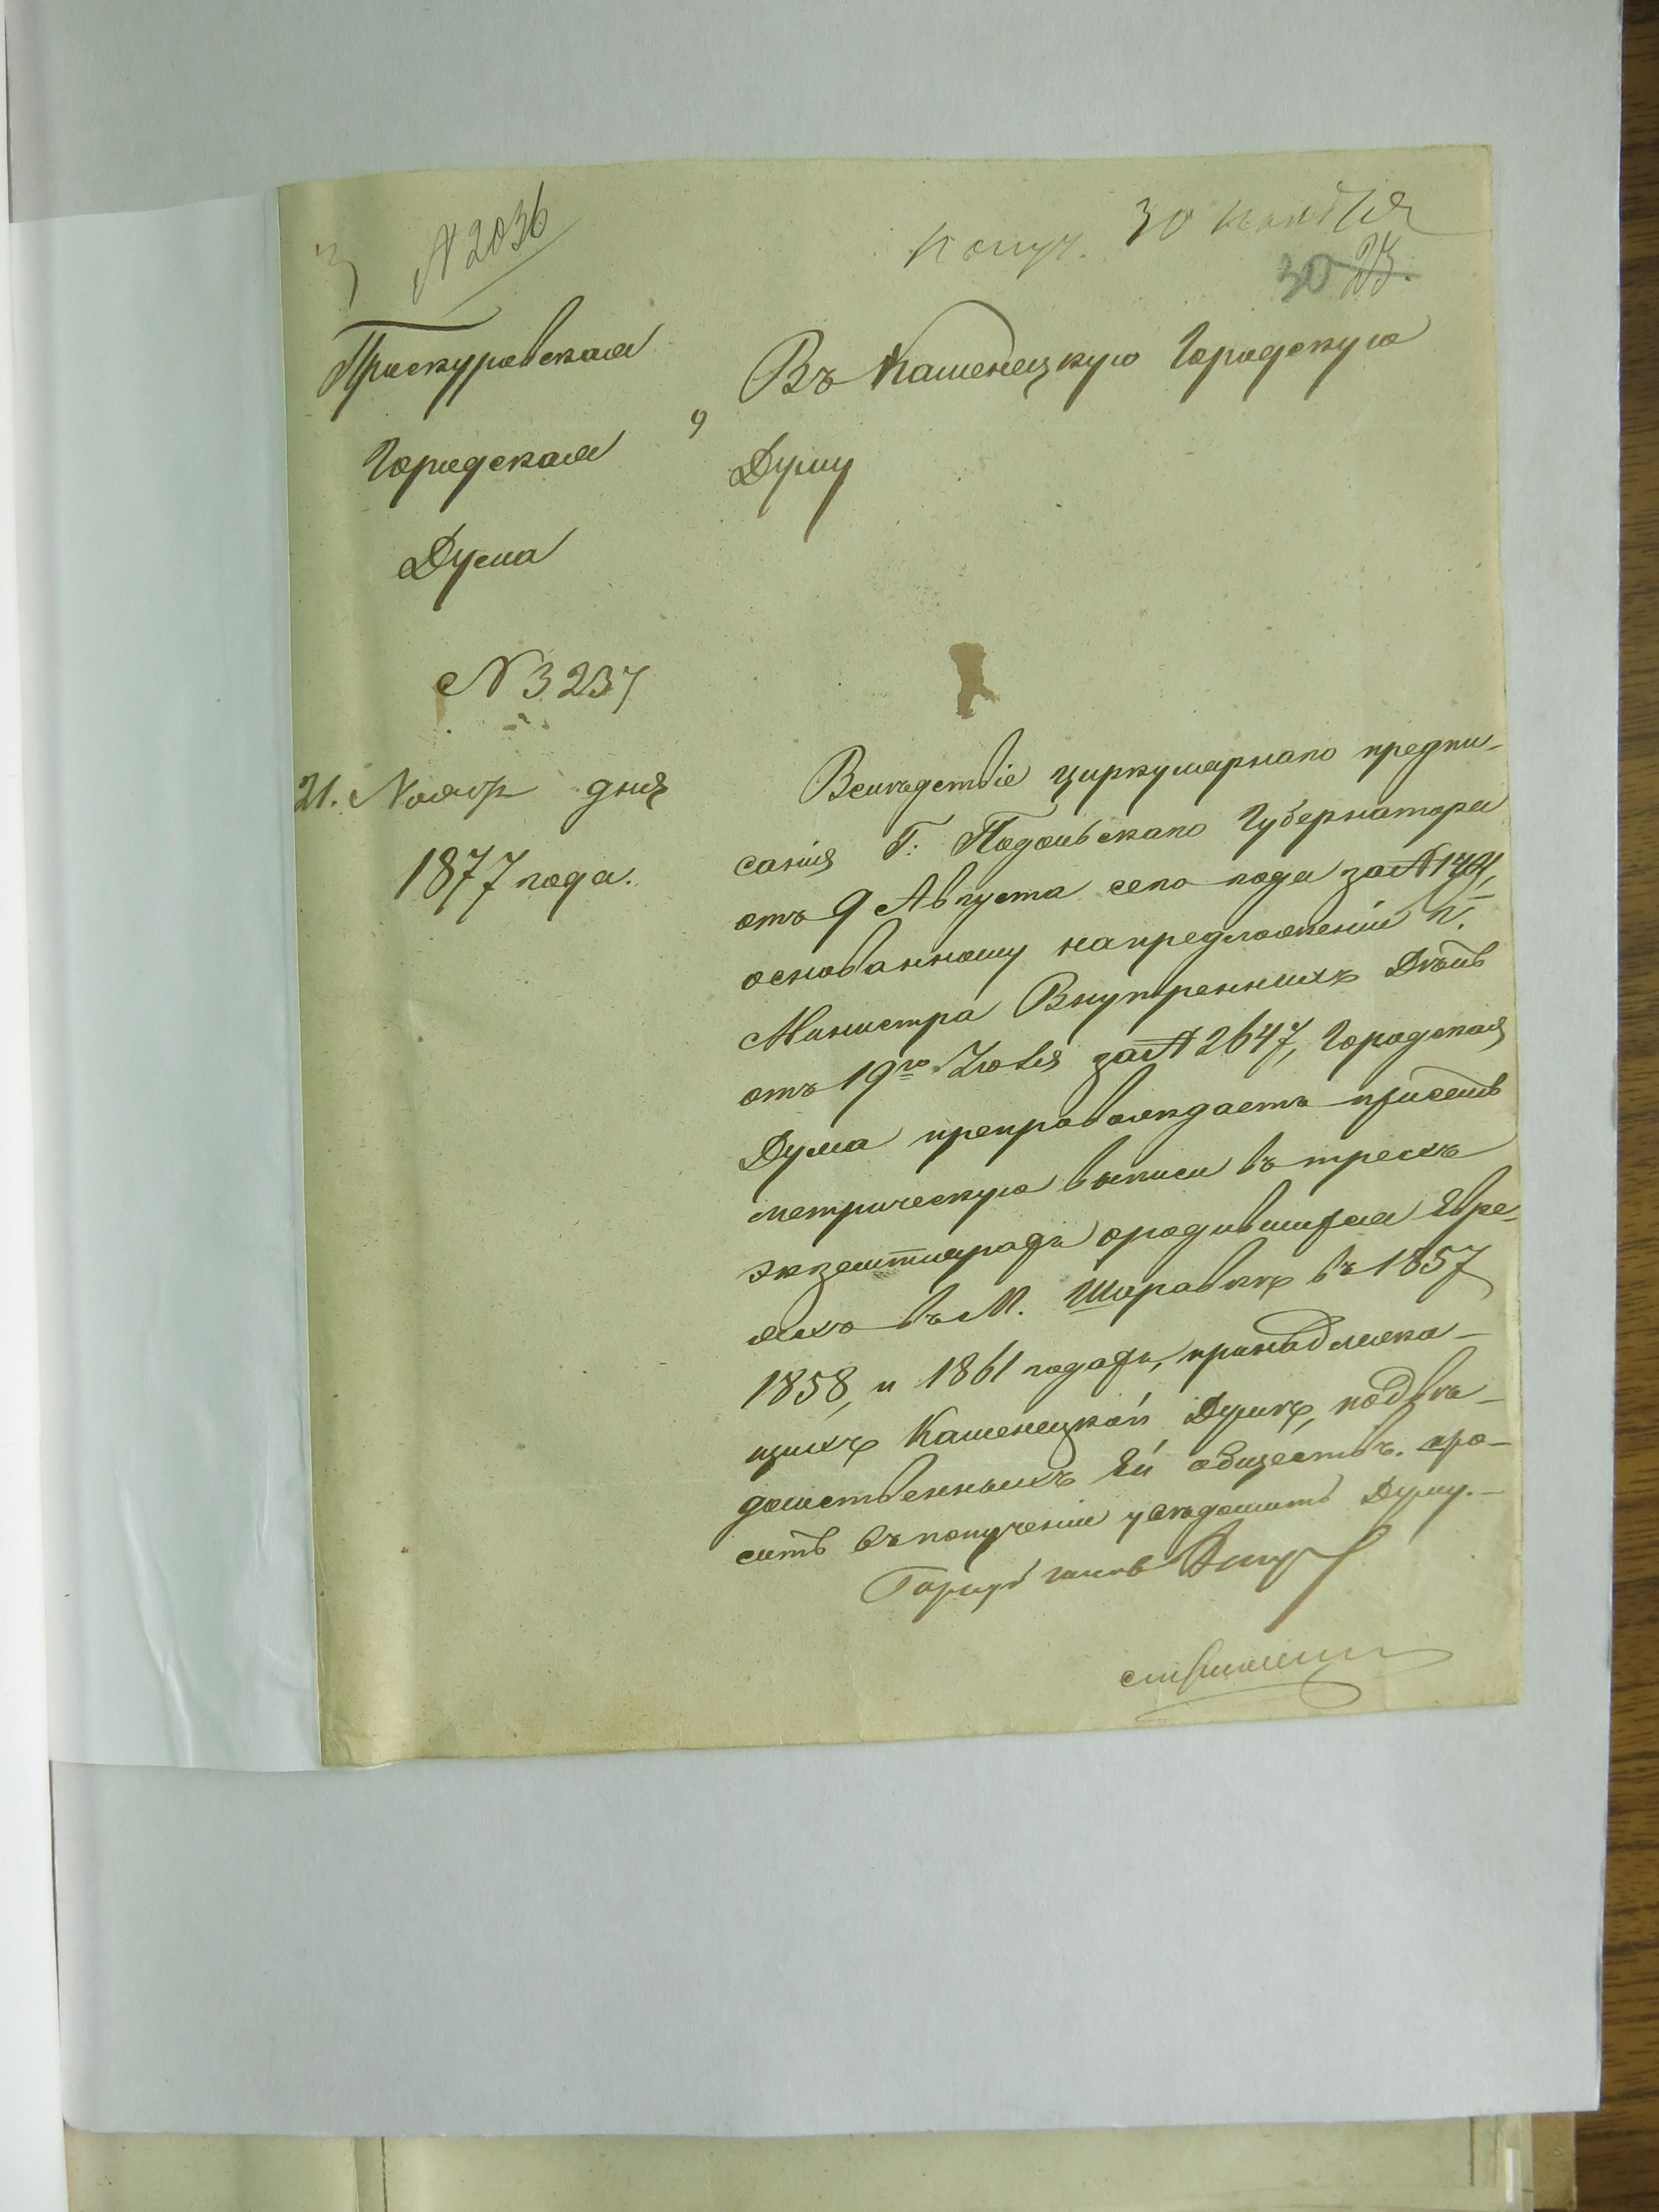 N 2036
Получ. 30 ноября
30 23.
Проскуровская
Городская
Дума
N 3237
21. Ноября дня
1877 года.
Въ Каменецкую Городскую
Думу
Вслѣдствіе циркулярнаго предпи-
санія Г: Подольскаго Губернатора
отъ 9 Августа сего года за N
основанному на предложеніи Г.
Министра Внутреннихъ Дѣлъ
отъ 19го Іюля за N 2647, Городская
Дума препровождаетъ при семъ
метрическую выписи въ трехъ
экземплярахъ о родившихся Евре-
яхъ въ М. Шаравкѣ въ 1857
1858, и 1861 годахъ, принадлежа-
щихъ Каменецкой Думѣ, подвѣ-
домственныхъ Ей обществъ. про-
ситъ въ полученіи увѣдомить Думу.-
Город голова